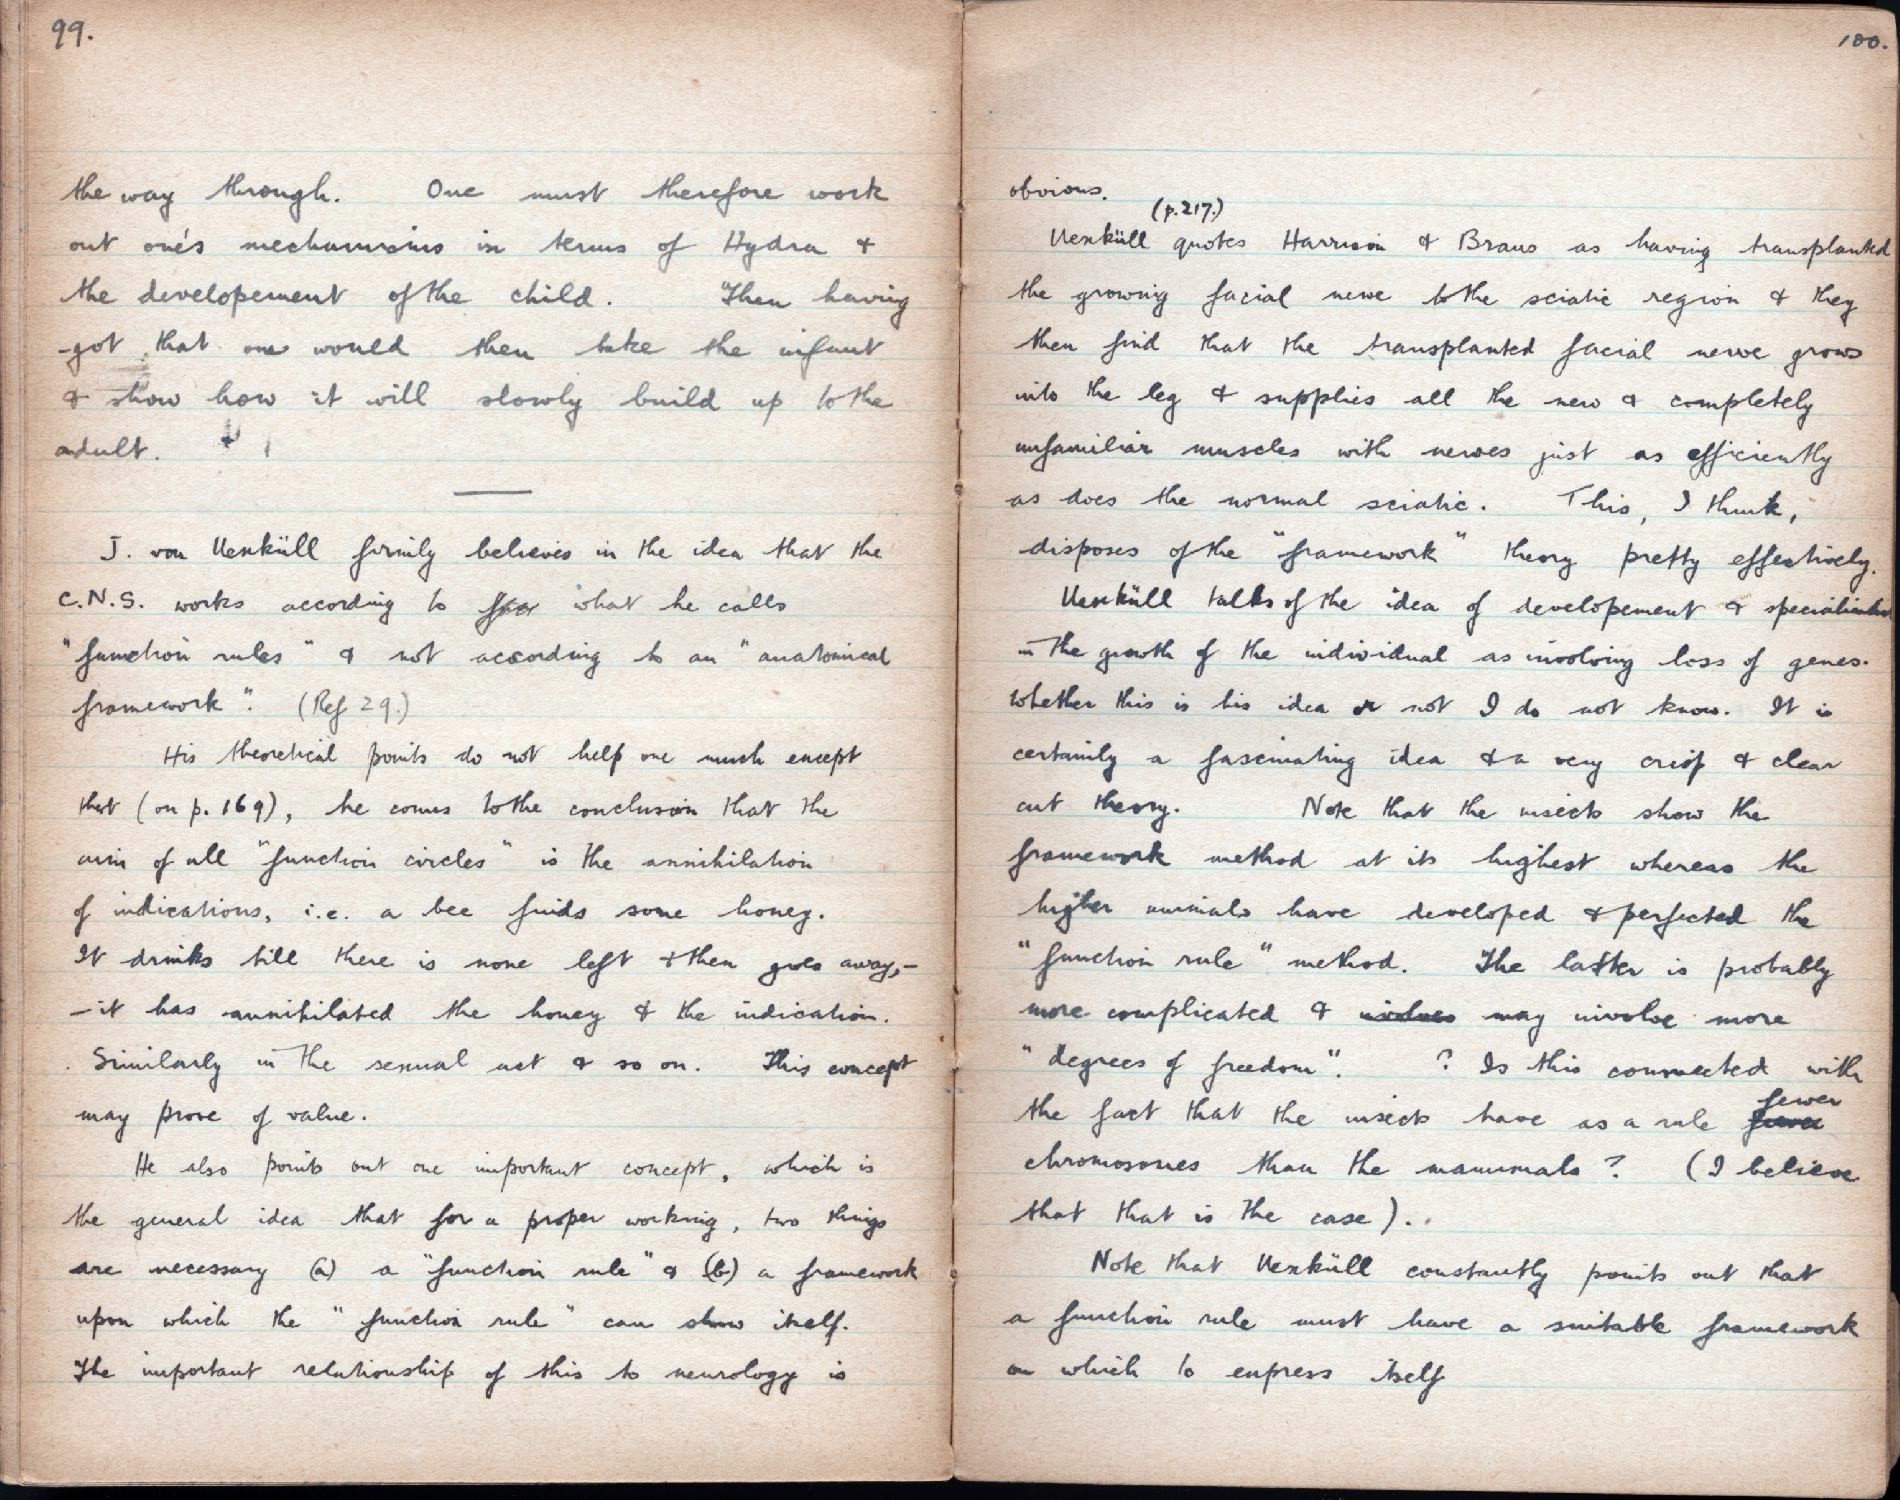 99.
the way through. One must therefore work
out one's mechanisms in terms of Hydra &
the developement of the child. Then having
got that one would then take the infant
& show how it will slowly build up to the
adult.
J. von Uexküll firmly believes in the idea that the
C.N.S. works according to what he calls
"function rules" & not according to an "anatomical
framework". (Ref 29.)
His theoretical points do not help one much except
that (on p. 169), he comes to the conclusion that the
aim of all "function circles" is the annihilation
of indications, i.e. a bee finds some honey.
It drinks till there is none left & then goes away,—
— it has annihilated the honey & the indication.
Similarly in the sexual act & so on. This concept
may prove of value.
He also points out one important concept, which is
the general idea that for a proper working, two things
are necessary (a) a "function rule" & (b) a framework
upon which the "function rule" can show itself.
The important relationship of this to neurology is
100.
obvious.
(p. 217.)
Uexküll quotes Harrison & Braus as having transplanted
the growing facial nerve to the sciatic region & they
then find that the transplanted facial nerve grows
into the leg & supplies all the new & completely
unfamiliar muscles with nerves just as efficiently
as does the normal sciatic. This, I think,
disposes of the "framework" theory pretty effectively.
Uexküll talks of the idea of developement & specialisation
in the growth of the individual as involving loss of genes.
Whether this is his idea or not I do not know. It is
certainly a fascinating idea & a very crisp & clear
cut theory. Note that the insects show the
framework method at its highest whereas the
higher animals have developed & perfected the
"function rule" method. The latter is probably
more complicated & involves may involve more
"degrees of freedom". ? Is this connected with
the fact that the insects have as a rule fewer
chromosomes than the mammals? (I believe
that that is the case).
Note that Uexküll constantly points out that
a function rule must have a suitable framework
on which to express itself